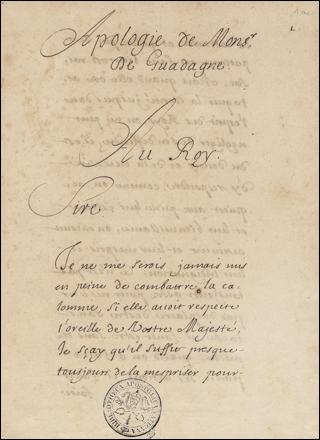 Apologie de Mons.r
De Guadagne
1.
Au Roy.
Sire
Je ne me serois jamais mis
en peine de combattre la ca-
lomnie, si elle auoit respecté
l'oreille de Vostre Majesté,
Je sçay qu'il suffit presque
tousjours de la mespriser pour-